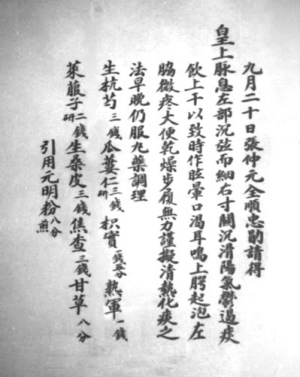 九月二十日張仲元全順忠酌請得
皇上脈息左部沉弦而細右寸關沉滑陽氣鬱遏痰
飲上干以致時作眩暈口渴耳鳴上腭起泡左
脇微疼大便乾燥步履無力謹擬清熱化痰之
法早晚仍服丸藥調理
生杭芍三錢瓜蔞仁三錢研枳實錢五分熟軍一錢
萊菔子二錢研生桑皮三錢焦查三錢甘草八分
引用元明粉八分煎